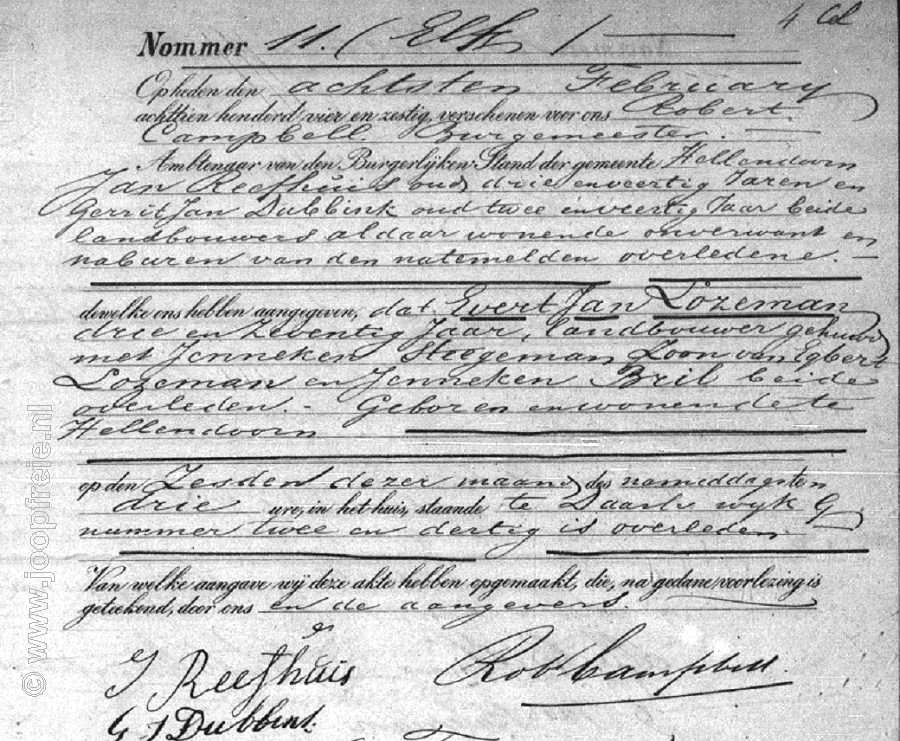 4 Cel
Nommer 11. ( Elf )
Op heden den achtsten February
achttien honderd vier en zestig, verschenen voor ons Robert
Campbell Burgemeester.
Ambtenaar van den Burgerlijken Stand der gemeente Hellendoorn
Jan Reefhuis oud drie enveertig Jaren en
Gerrit Jan Dubbink oud twee enveertig Jaar beide
landbouwers aldaar wonende onverwant en
naburen van den natemelden overledene. –
dewelke ons hebben aangegeven, dat Evert Jan Lozeman
drie en Zeventig Jaar, landbouwer gehuwd
met Jenneken Steegeman Zoon van Egbert
Lozeman en Jenneken Bril beide
overleden. – Geboren enwonende te
Hellendoorn
op den Zesden dezer maand des nameddagsten
drie ure, in het huis, staande te Daarle wyk G
nummer twee en dertig is overleden.
Van welke aangave wij deze akte hebben opgemaakt, die, na gedane voorlezing is
geteekend, door ons en de aangevers.
J Reefhuis Rob Campbell.
G J Dubbink
© www.joopfreie.nl